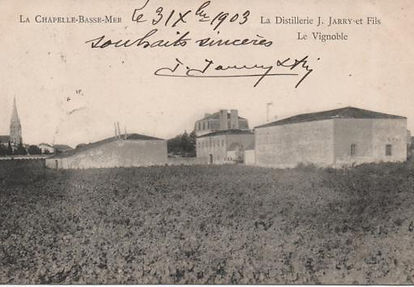 La Chapelle-Basse-Mer
Le 31 Xbre 1903
La Distillerie J. Jarry et Fils
Le Vignoble
souhaits sincères
J. Jarry & fils